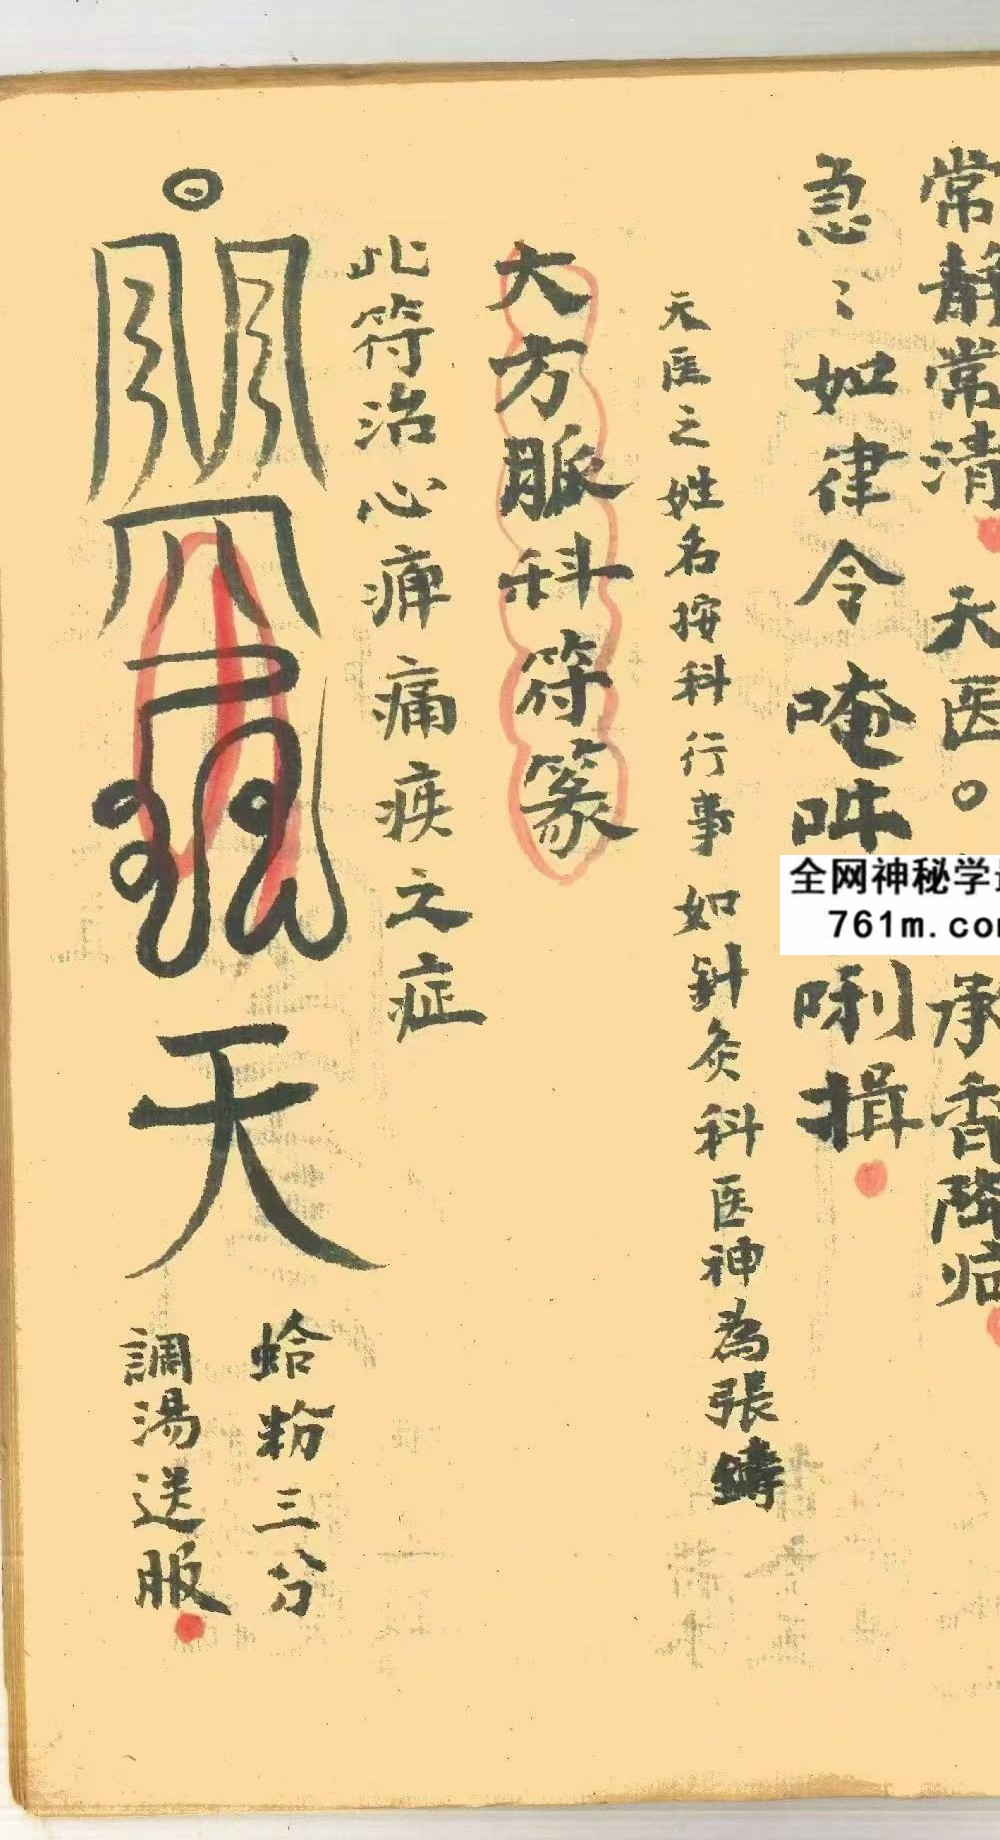 常静常清天医。承香陞
急〻如律令唵吽唎揖
天医之姓名按科行事如針灸科医神為張鑄
大方脈科符篆
此符治心痺痛疾之症
天
蛤粉三分
調湯送服
全网神秘学
761m.com